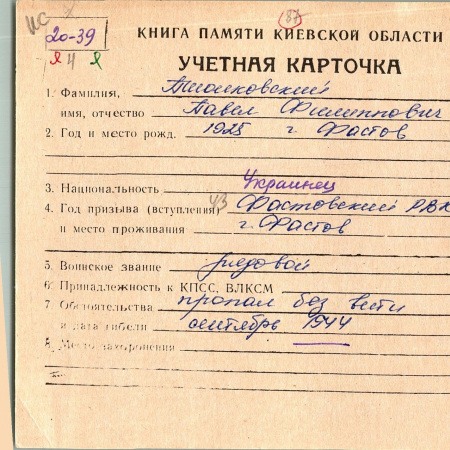 ис
20-39
87
я ч я
КНИГА ПАМЯТИ КИЕВСКОЙ ОБЛАСТИ
УЧЕТНАЯ КАРТОЧКА
1. Фамилия, Тиолковский
имя, отчество Павел Филиппович
2. Год и место рожд. 1925 г. Фастов
3. Национальность Украинец
4. Год призыва (вступления) 43 Фастовский РВК
и место проживания г. Фастов
5. Воинское звание рядовой
6. Принадлежность к КПСС, ВЛКСМ
7 Обстоятельства пропал без вести
и дата гибели сентябрь 1944
8. Место захоронения